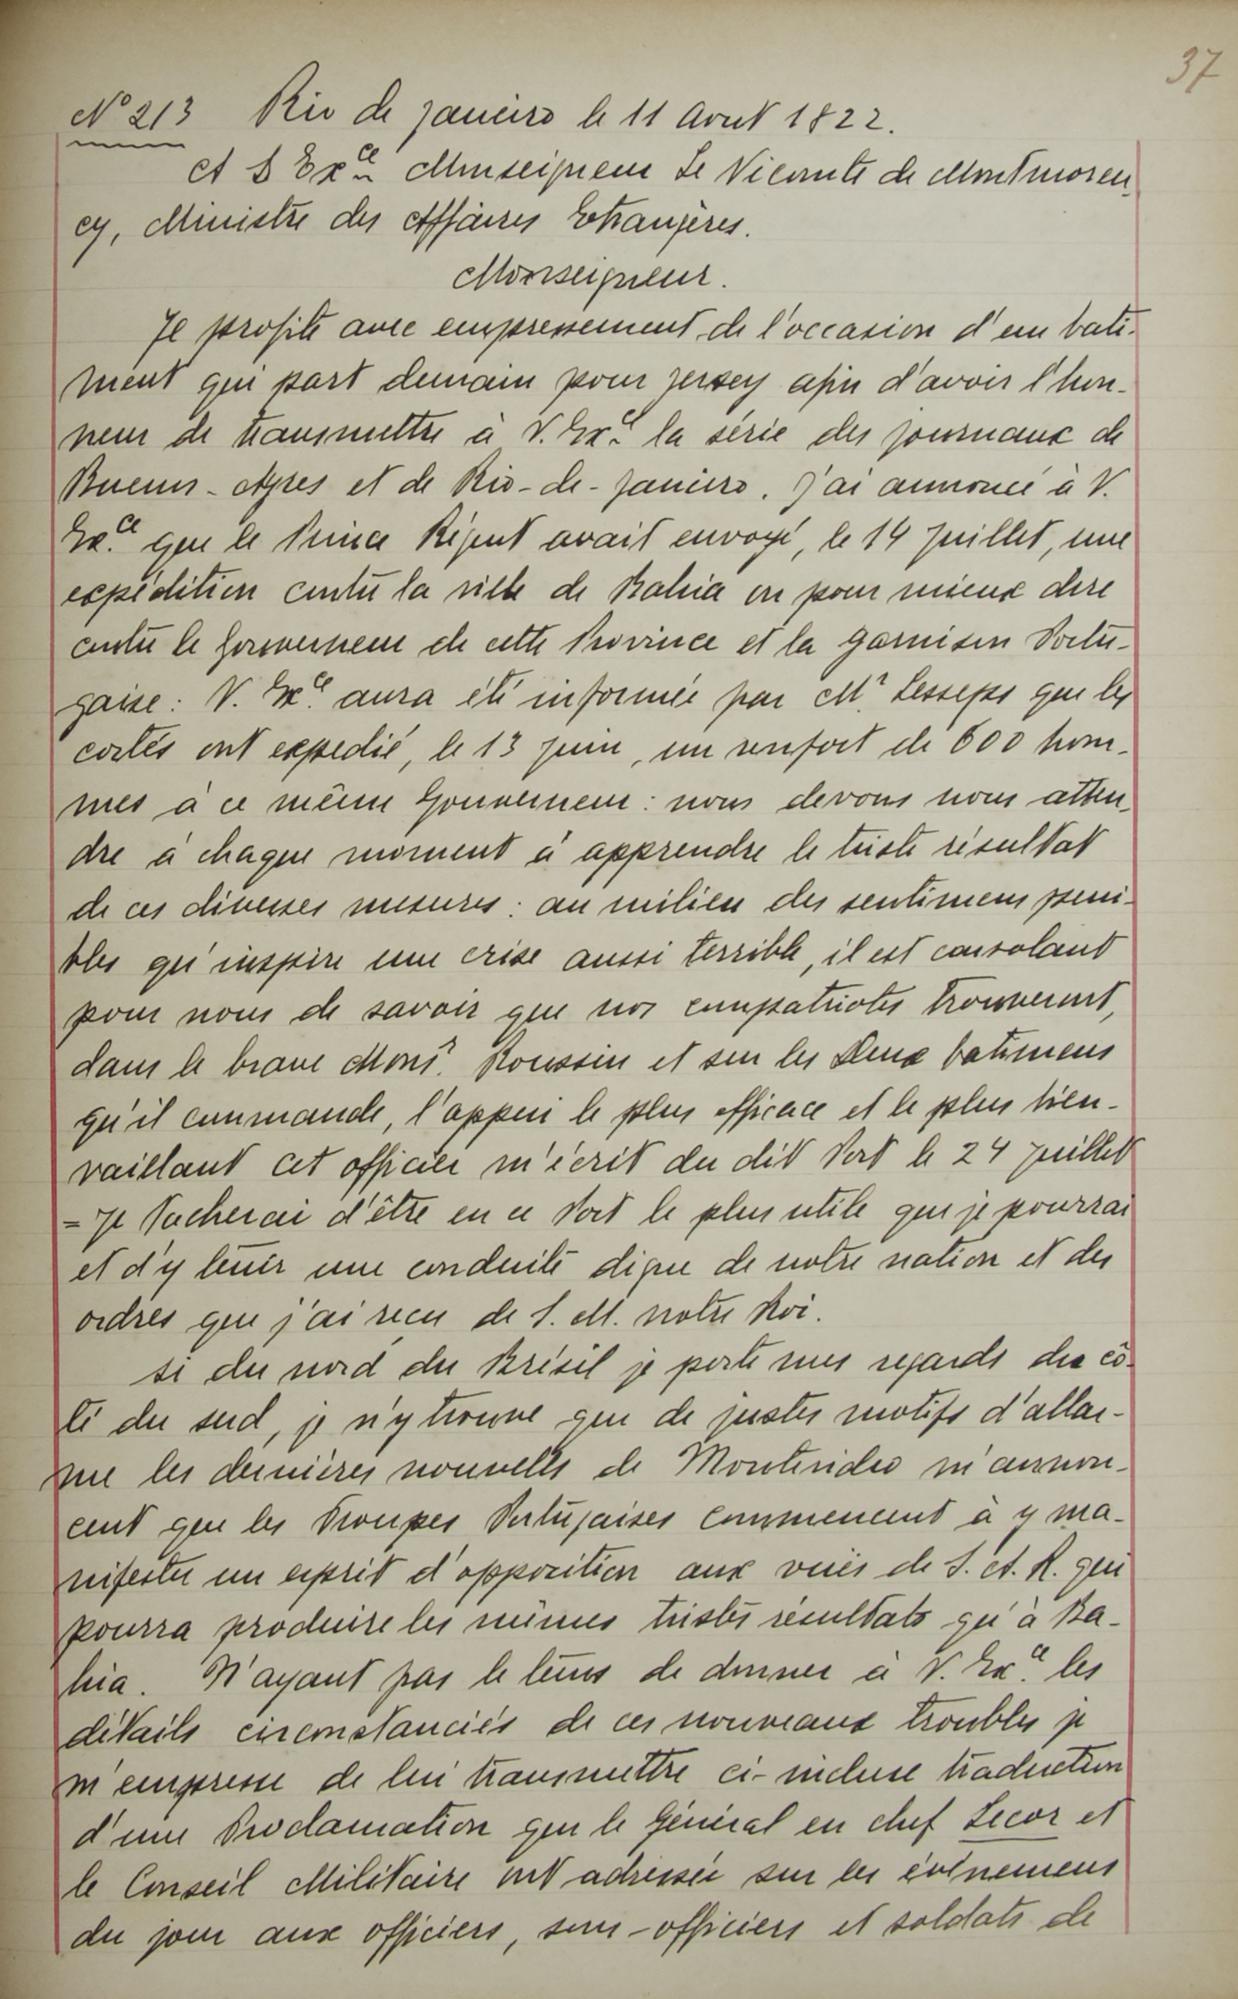 37
Nº 213 Rio de Janeiro le 11 Aout 1822.
A S Exce Monseigneur Le Vicomte de Montmoren-
cy, Ministre des Affaires Etrangères.
Monseigneur.
Je profite avec empressement de l'occasion d'un bati-
ment qui part demain pour Jersey afin d'avoir l'hon-
neur de transmettre à V. Exce la série des journaux de
Buenos-Ayres et de Rio-de-Janeiro. J'ai annoncé à V.
Exce que le Prince Régent avait envoyé, le 14 Juillet, une
expédition contre la ville de Bahia ou pour mieux dire
contre le Gouverneur de cette Province et la garnison Portu-
gaise: V. Exce aura été informée par Mr Lesseps que les
cortès ont expedié, le 13 Juin, un renfort de 600 hom-
mes à ce même Gouverneur: nous devons nous atten-
dre à chaque moment à apprendre le triste résultat
de ces diverses mesures: au milieu des sentimens peni-
bles qu'inspire une crise aussi terrible, il est consolant
pour nous de savoir que nos compatriotes trouveront,
dans le brave Monsr. Roussin et sur les deux batimens
qu'il commande, l'appui le plus efficace et le plus bien-
vaillant cet officier m'écrit du dit Port le 24 Juillet
= Je Tacherai d'être en ce Port le plus utile que je pourrai
et d'y tenir une conduite digne de notre nation et des
ordres que j'ai recu de S. M. notre Roi.
si du nord du Brésil je porte mes regards du cô-
té du sud, je n'y trouve que de justes motifs d'allar-
me les dernières nouvelles de Montevideo m'annon-
cent que les Troupes Portugaises commencent à y ma-
nifester un esprit d'opposition aux vuës de S. A. R. qui
pourra produire les mêmes tristes résultats qu'à Ba-
hia. N'ayant pas le tems de donner à V. Exce les
détails circonstanciés de ces nouveaux troubles je
m'empresse de lui transmettre ci-incluse traduction
d'une Proclamation que le Général en chef Lecor et
le Conseil Militaire ont adressée sur les événemens
du jour aux officiers, sous-officiers et soldats de